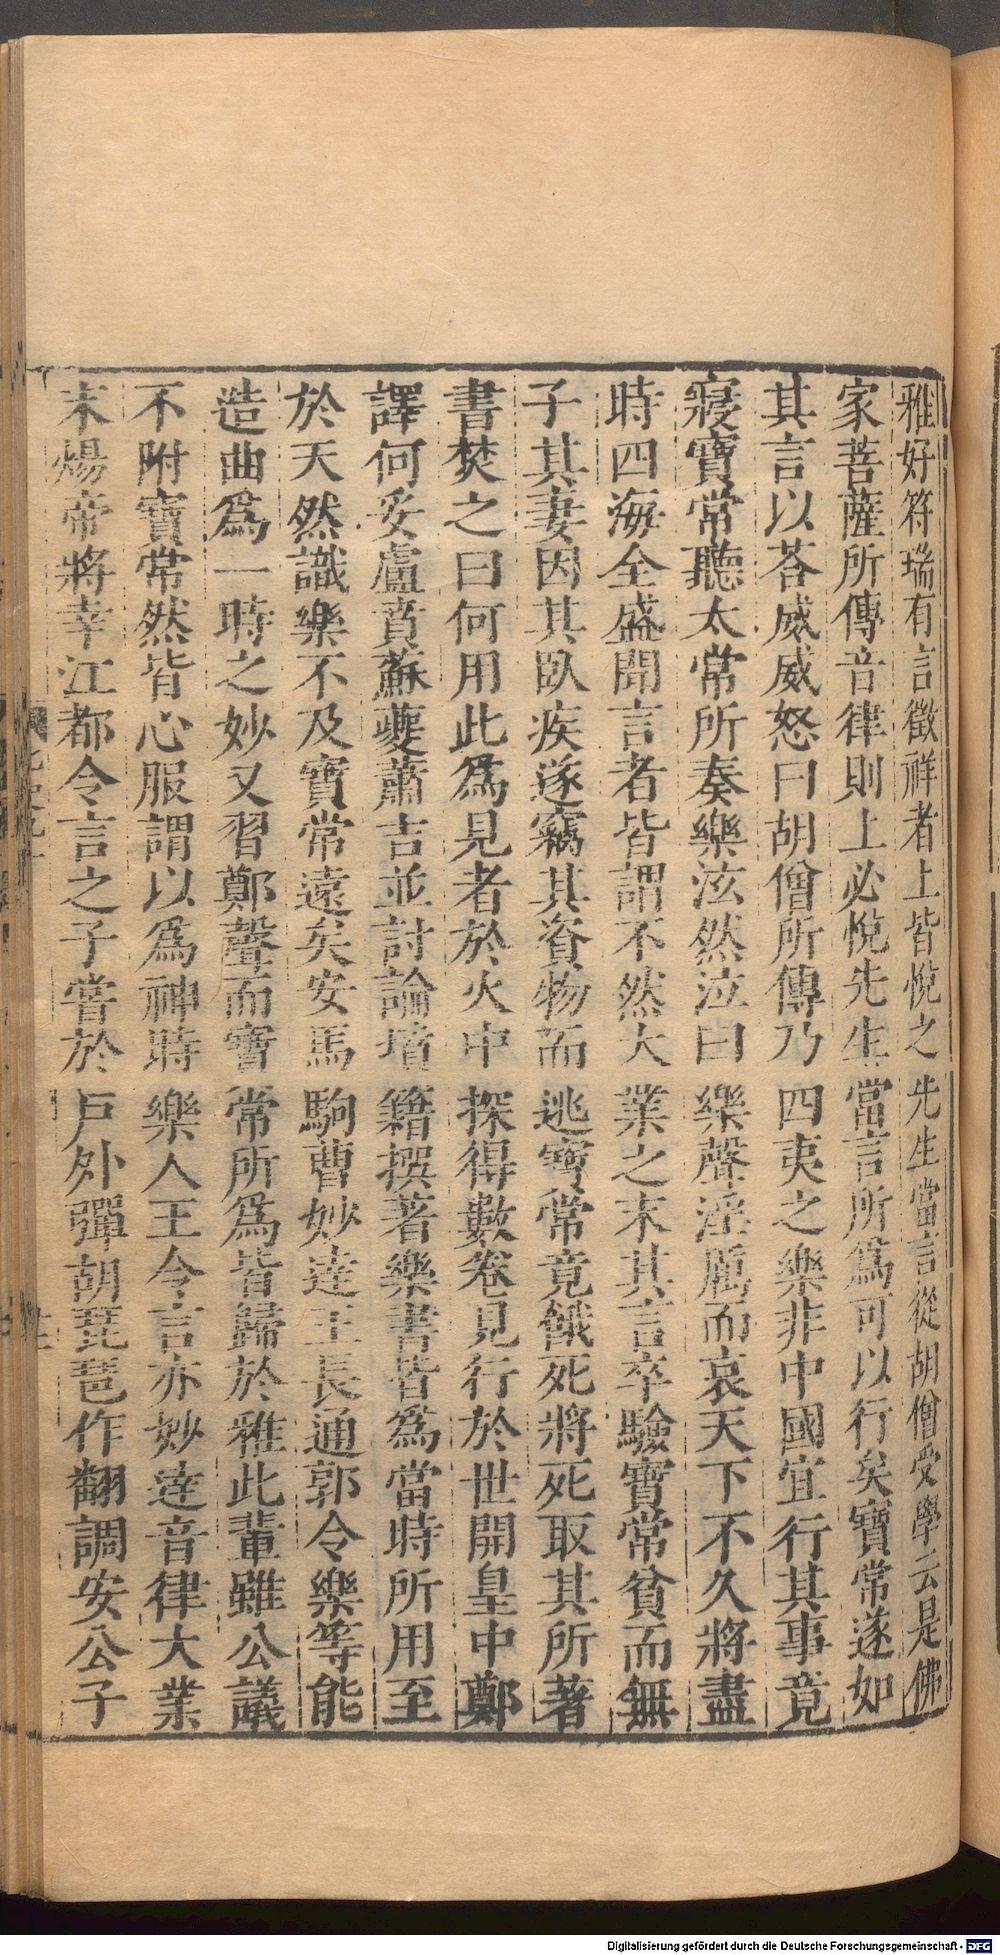 雅好符瑞有言徵祥者上皆悅之先生當言從胡僧受學云是佛
家菩薩所傳音律則上必悅先生當言所爲可以行矣寶常遂如
其言以荅威威怒曰胡僧所傳乃四夷之樂非中國宜行其事竟
寢寶常聽太常所奏樂泫然泣曰樂聲淫厲而哀天下不久將盡
時四海全盛聞言者皆謂不然大業之末其言卒驗寶常貧而無
子其妻因其臥疾遂竊其資物而逃寶常竟餓死將死取其所著
書焚之曰何用此爲見者於火中探得數卷見行於世開皇中鄭
譯何妥盧賁蘇夔蕭吉並討論墳籍撰著樂書皆爲當時所用至
於天然識樂不及寶常遠矣安馬駒曹妙達王長通郭令樂等能
造曲爲一時之妙又習鄭聲而寶常所爲皆歸於雅此輩雖公議
不附寶常然皆心服謂以爲神時樂人王令言亦妙達音律大業
末煬帝將幸江都令言之子嘗於戶外彈胡琵琶作翻調安公子
Digitalisierung gefördert durch die Deutsche Forschungsgemeinschaft - DFG